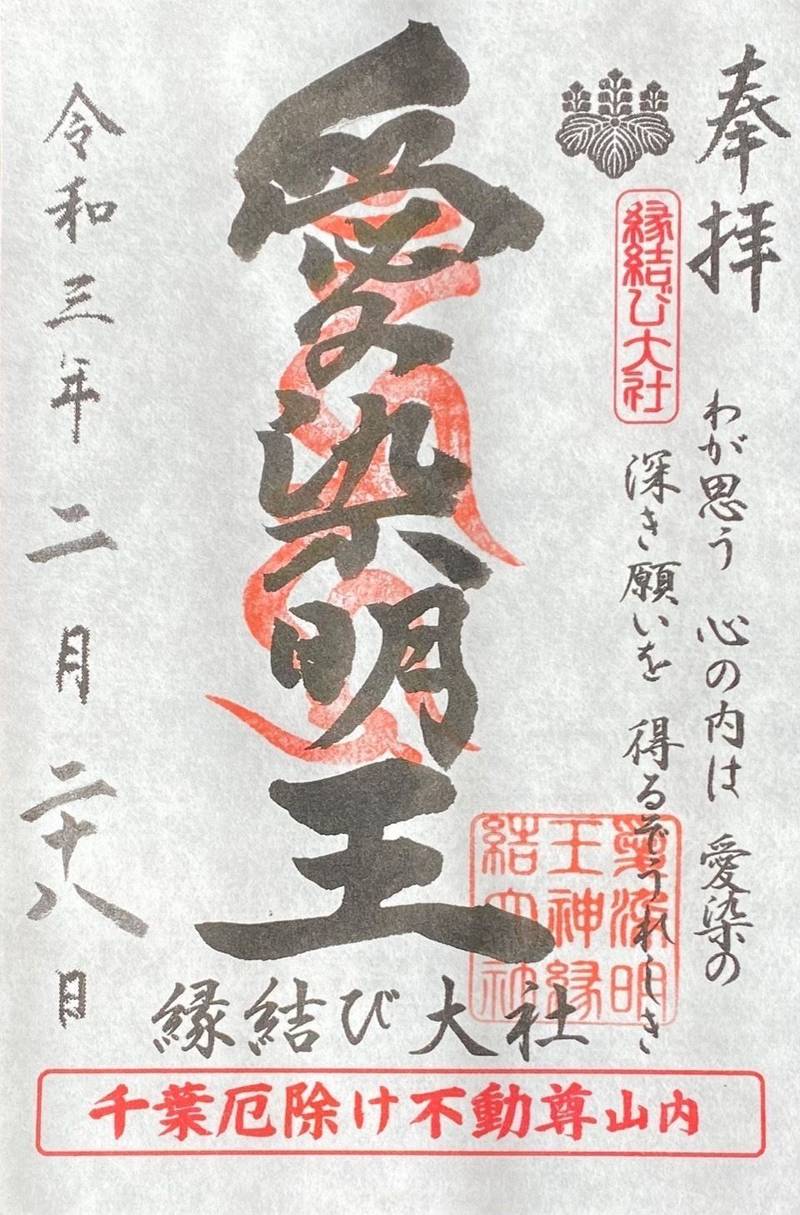 奉拝
縁結び大社
わが思う 心の内は 愛染の
深き願いを 得るぞうれしき
愛染明王
愛染明
王神縁
結大社
縁結び大社
令和三年 二月 二十八日
千葉厄除け不動尊山内